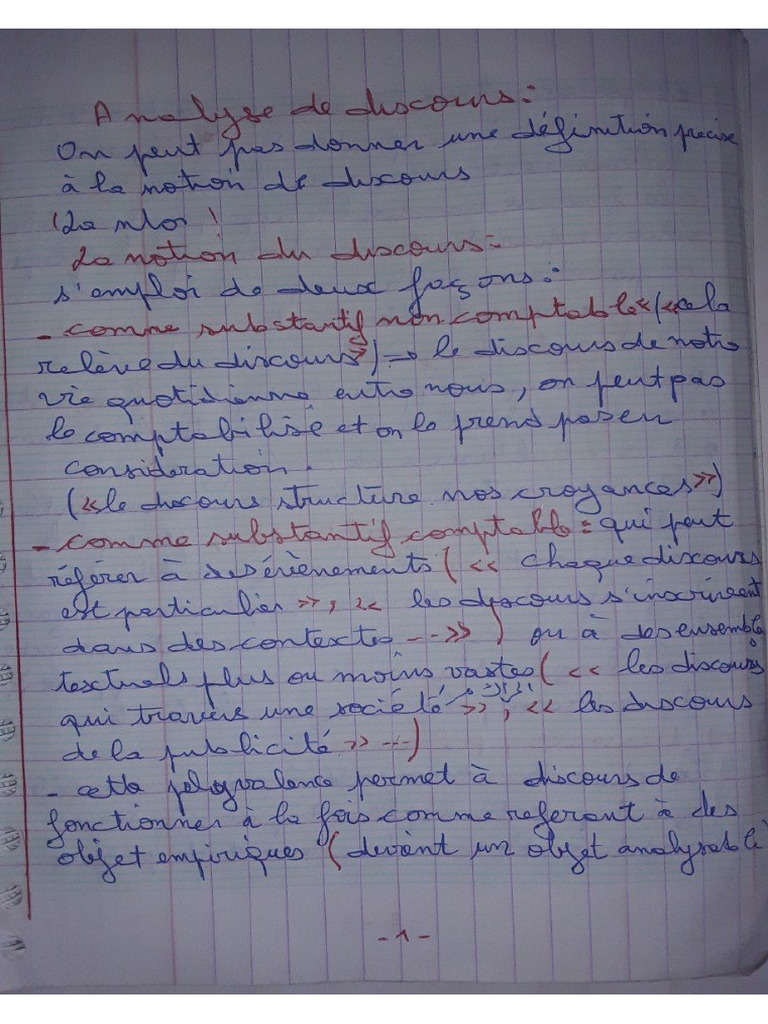 Analyse de discours :
On peut pas donner une définition precise
à la notion de discours
La notion du discours :
s'emploi de deux façons :
- comme substantif non comptable « (« cela
relève du discours ») → le discours de notre
vie quotidienne entre nous, on peut pas
le comptabilisé et on le prend pas en
consideration.
(« le discours structure nos croyances »)
- comme substantif comptable : qui peut
référer à des évènements (« chaque discours
est particulier », « les discours s'inscrivent
dans des contextes -- ») ou à des ensemble
textuels plus ou moins vastes (« les discours
qui travers une société », « les discours
de la publicité » --)
- cette polyvalence permet à discours de
fonctionner à la fois comme referant à des
objet empiriques (devient un objet analysable)
- 1 -